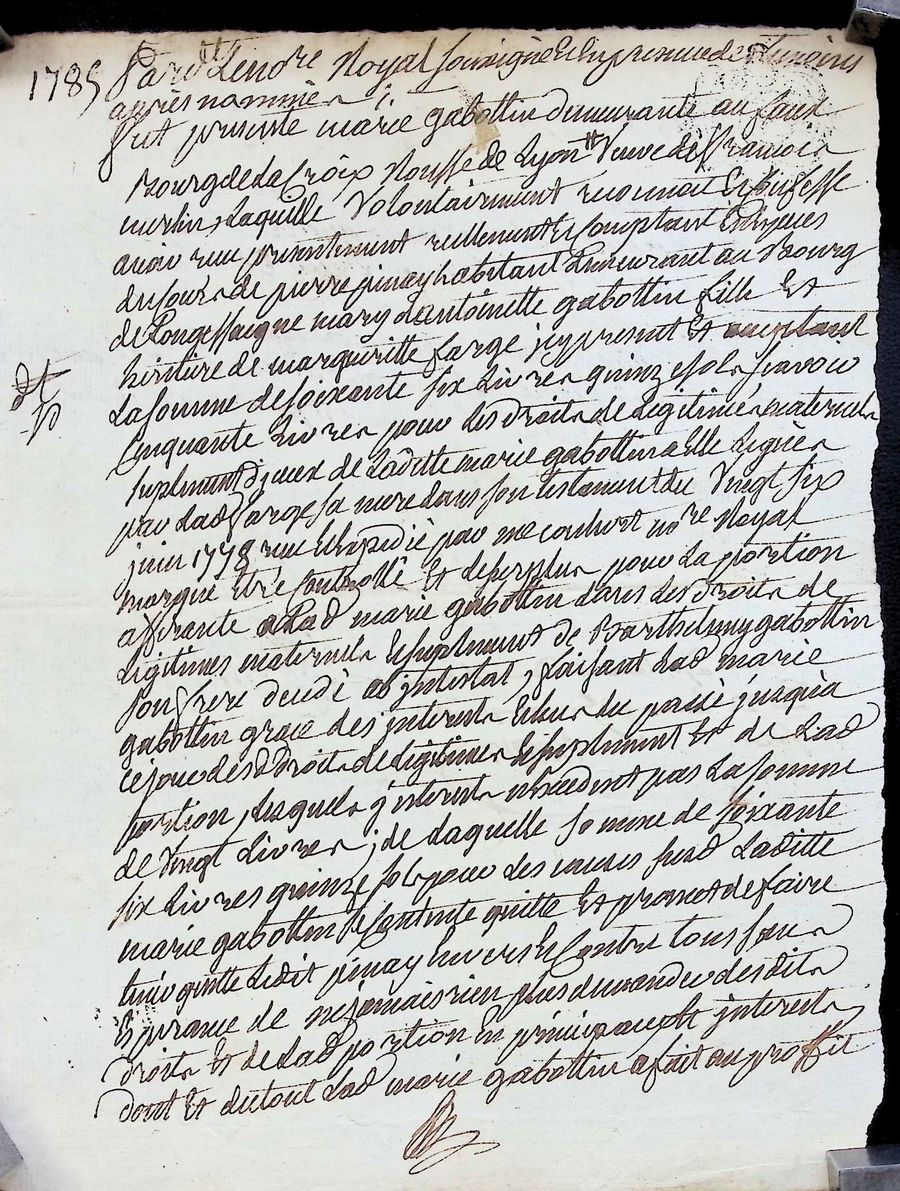 1785 Pard.t Le no.re Royal soussigné Et En presence des temoins
après nommés
fut presente marie gabottin dumeurante au faux
Bourg de La Croix Rousse de Lyon Veuve de françois
merlin, Laquelle Volontairement reconnait Et Confesse
avoir reçu presentement reellement Et Comptant En Especes
du Cours de pierre pinay habitant demeurant au Bourg
de Longessaigne mary d'antoinette gabottin fille Et
heritiere de margueritte farge, jcy present Et acceptant
La somme de soixante six Livres quinze sols, scavoir
Cinquante Livres pour Les Droits de Legitimes maternels
suplement djceux de Laditte marie gabottin a Elle Legués
par Lad farge sa mere dans son testament du Vingt six
juin 1778 reçu Et Expedié par me no.re Royal
marque Etre Controllé Et de surplus pour La portion
afferante a Lad marie gabottin dans Les Droits de
Legitimes maternels Et suplement de Barthelemy gabottin
son frere decedé ab jntestat, faisant Lad marie
gabottin grace des jnterests Echus du passé jusqu'a
Ce jour desd Droits de Legitimes Et suplement Et de Lad
portion, Lesquels jnterests n'Excedent pas La somme
de Vingt Livres ; de Laquelle somme de soixante
six Livres quinze sols pour Les causes susd Laditte
marie gabottin se Contente quitte Et promet de faire
tenir quitte Ledit pinay Envers Et Contre tous sans
Esperance de ne jamais rien plus demander desdits
Droits Et de Lad portion En principaux Et jnterests,
dont Et du tout Lad marie gabottin a fait au proffit